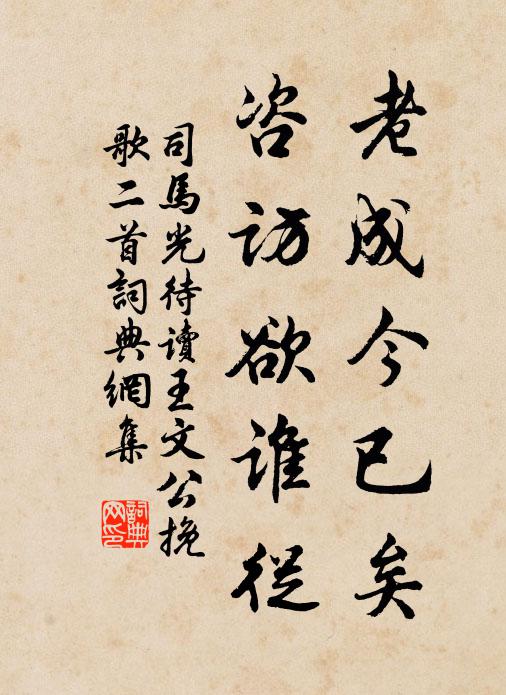 老成今已矣
咨訪欲誰從
司馬光待讀王文公挽
歌二首詞典網集
詞典
网印